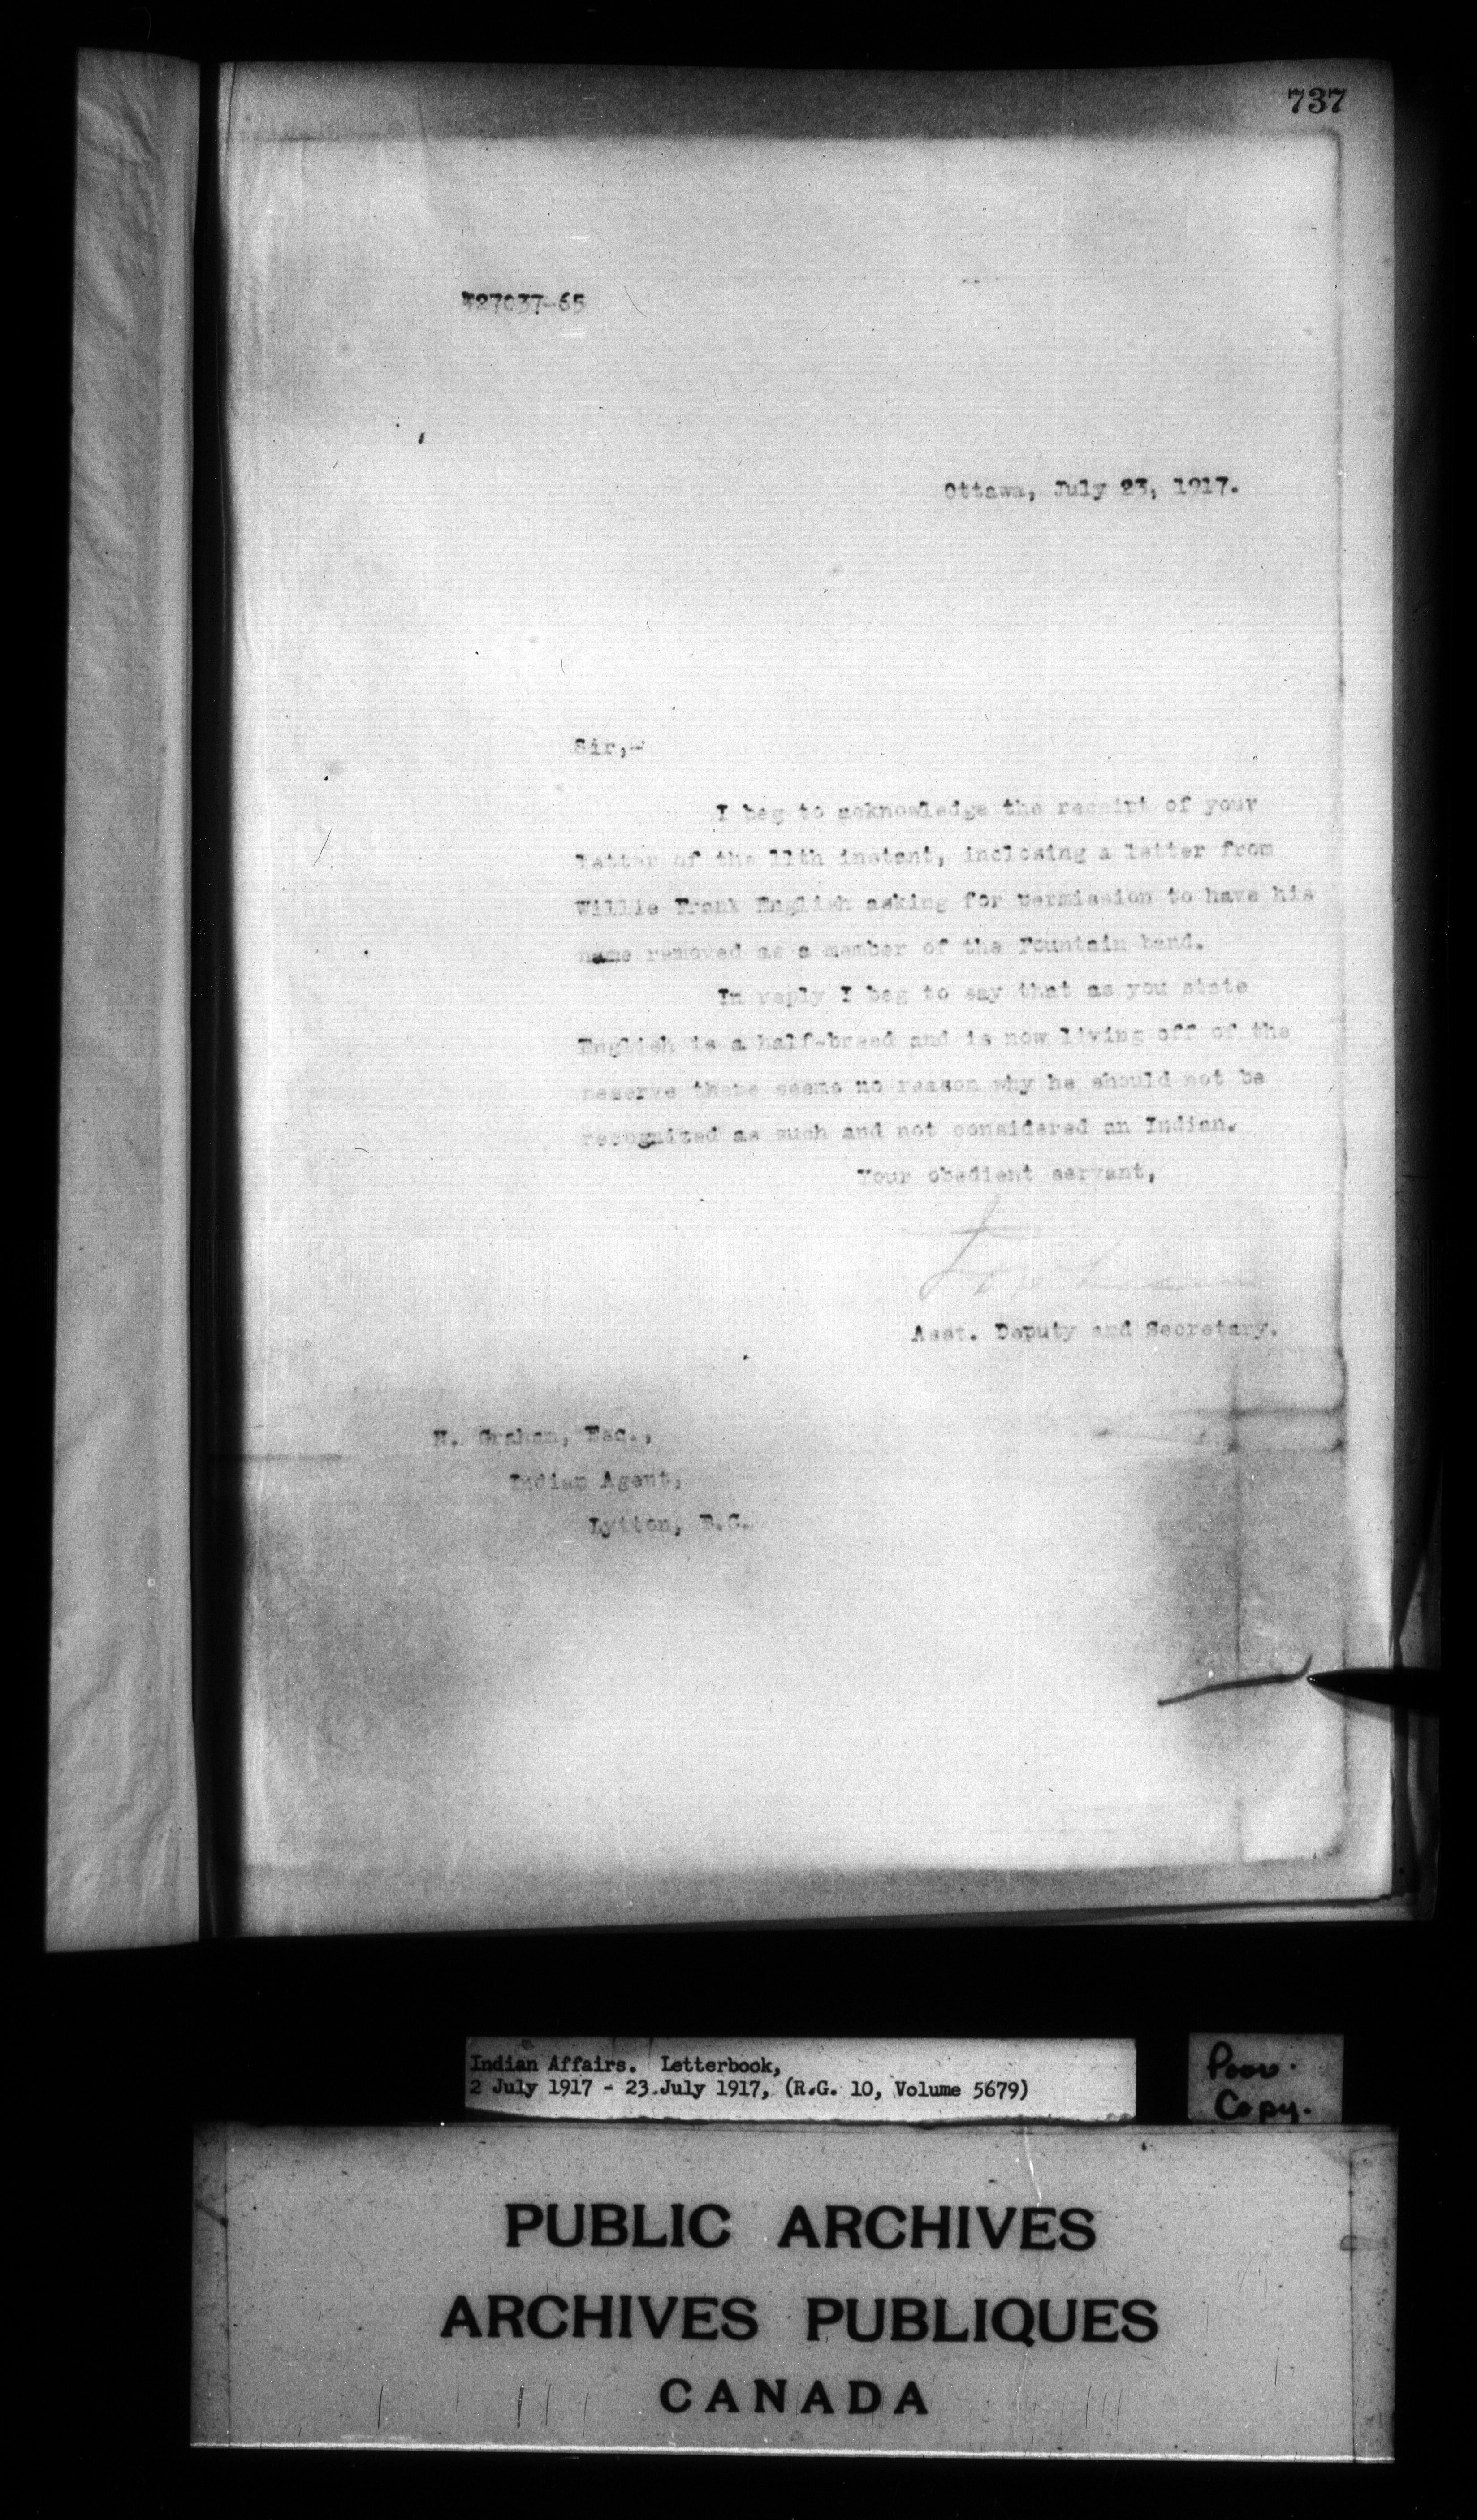 737
427037-65
Ottawa, July 23, 1917.
Sir,-
I beg to acknowledge the receipt of your
letter of the 11th instant, inclosing a letter from
Willie Frank English asking for permission to have his
name removed as a member of the Fountain band.
In reply I beg to say that as you state
English is a half-breed and is now living off of the
reserve there seems no reason why he should not be
recognized as such and not considered an Indian.
Your obedient servant,
Asst. Deputy and Secretary.
H. Graham, Esq.,
Indian Agent,
Lytton, B.C.
Indian Affairs. Letterbook,
2 July 1917 - 23 July 1917, (R.G. 10, Volume 5679)
Poor
Copy.
PUBLIC ARCHIVES
ARCHIVES PUBLIQUES
CANADA